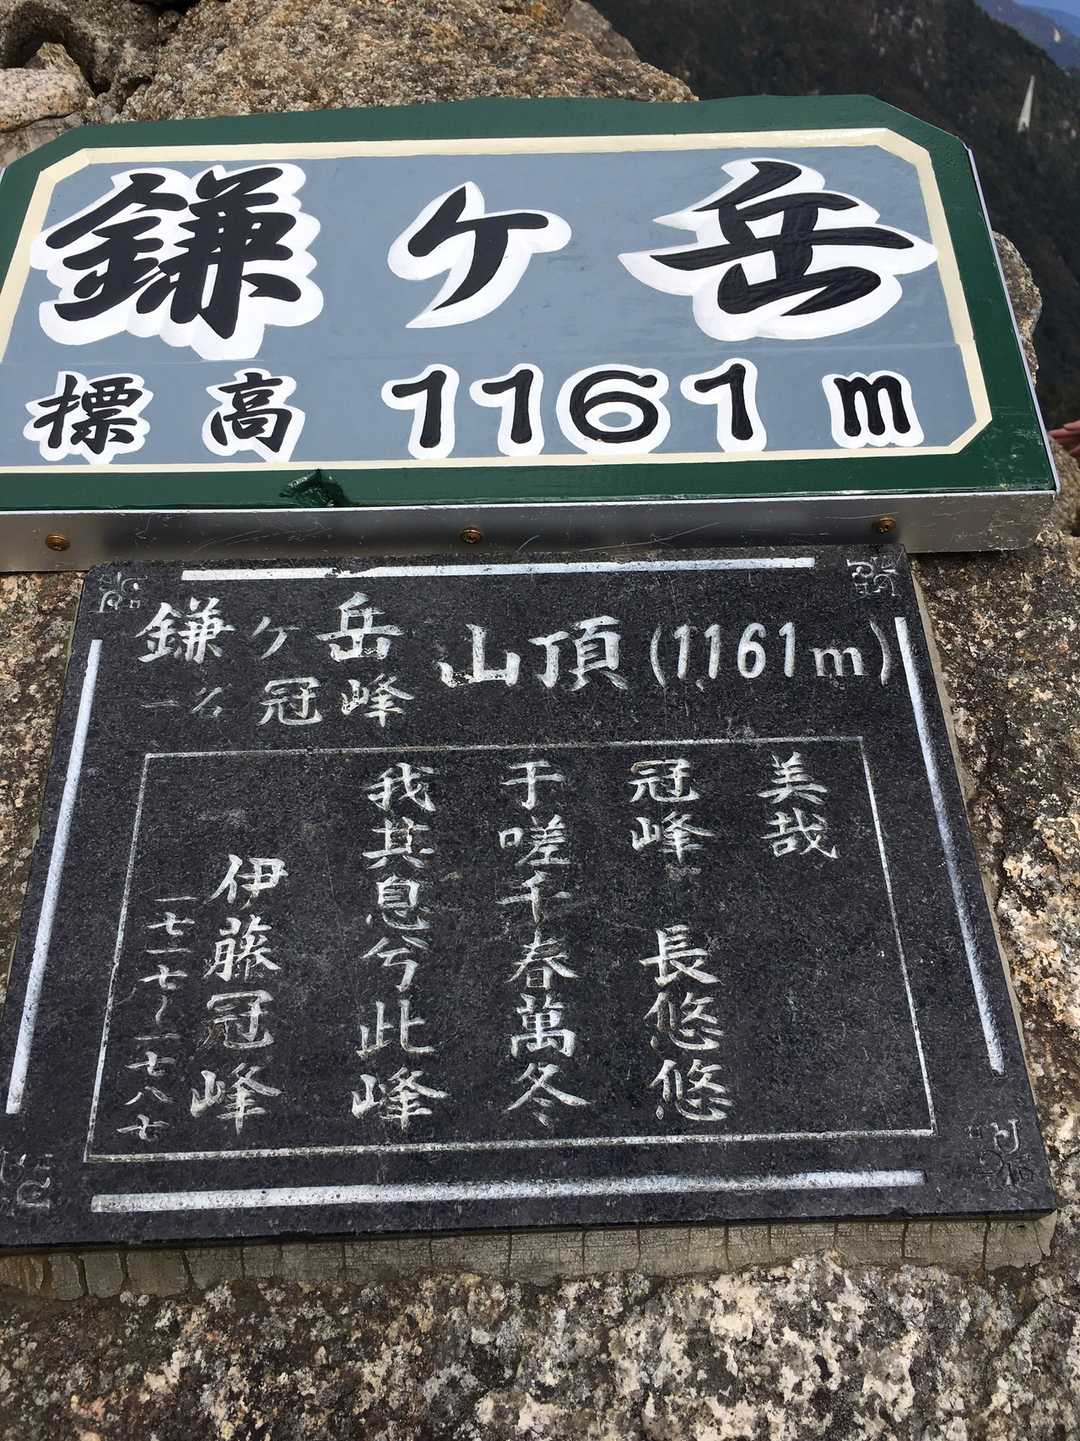 鎌ヶ岳
標高 1161m
鎌ヶ岳 山頂(1161m)
一名 冠峰
美哉
冠峰 長悠悠
于嗟千春萬冬
我其息兮此峰
伊藤冠峰
一七一七〜一七八七